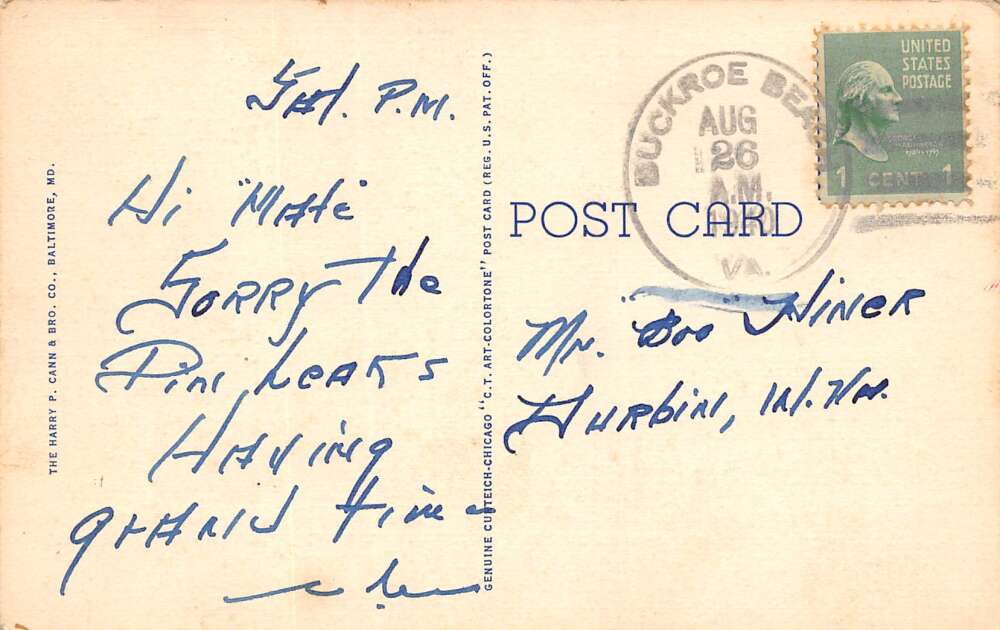 Sat. P.M.
Hi "Mate"
Sorry The
Pin Leaks
Having
grand time
THE HARRY P. CANN & BRO. CO., BALTIMORE, MD.
GENUINE CURTEICH-CHICAGO "C.T. ART-COLORTONE" POST CARD (REG. U.S. PAT. OFF.)
POST CARD
BUCKROE BEACH
AUG
26
A.M.
VA.
UNITED
STATES
POSTAGE
1 CENT 1
Mr. "Boo" Hiner
Durbin, W. Va.